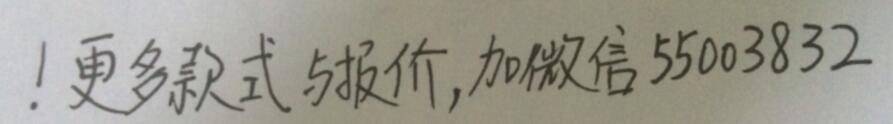 ！更多款式与报价,加微信55003832